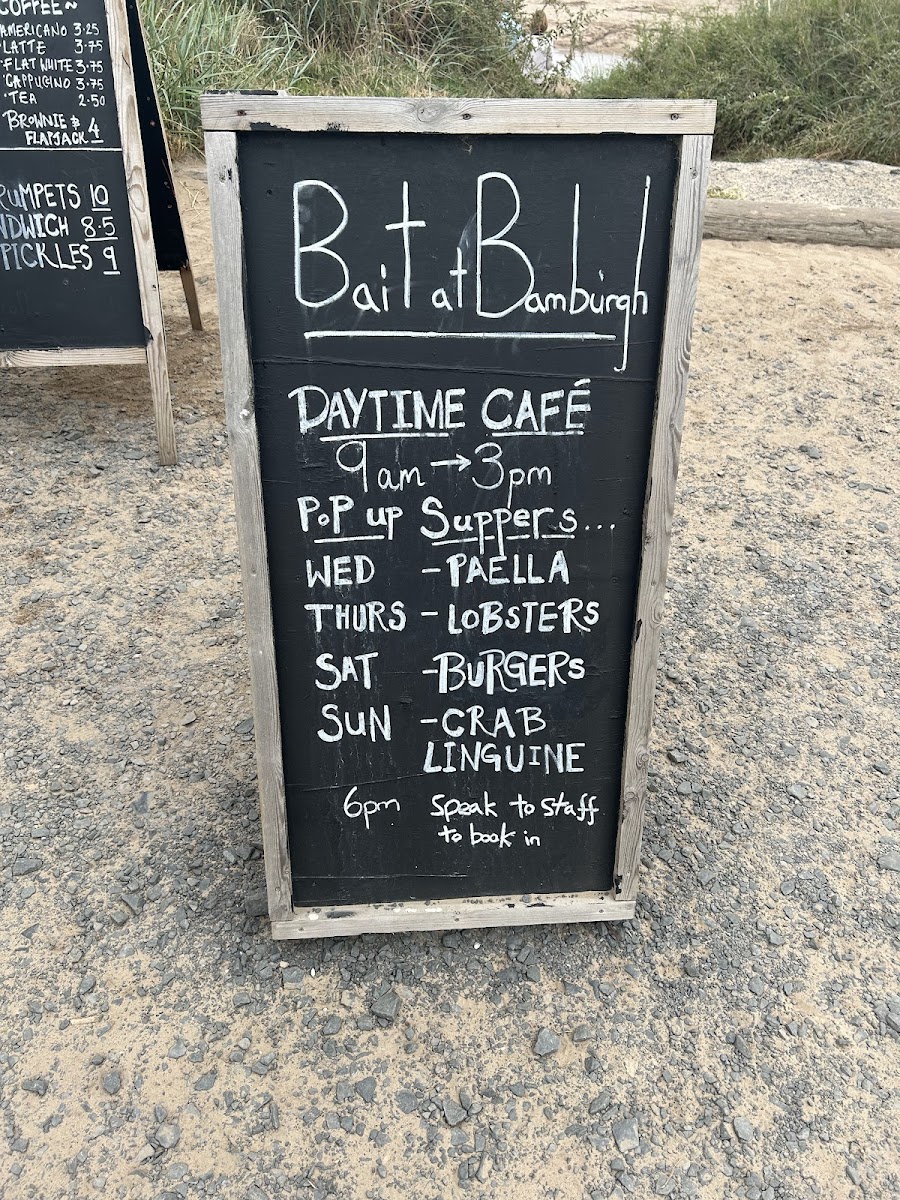 COFFEE~
AMERICANO 3.25
LATTE 3.75
FLAT WHITE 3.75
CAPPUCINO 3.75
TEA 2.50
BROWNIE &
FLAPJACK 4
RUMPETS 10
NDWICH 8.5
PICKLES 9
Bait at Bamburgh
DAYTIME CAFÉ
9am → 3pm
PoP up Suppers...
WED - PAELLA
THURS - LOBSTERS
SAT - BURGERS
SUN - CRAB
LINGUINE
6pm Speak to staff
to book in